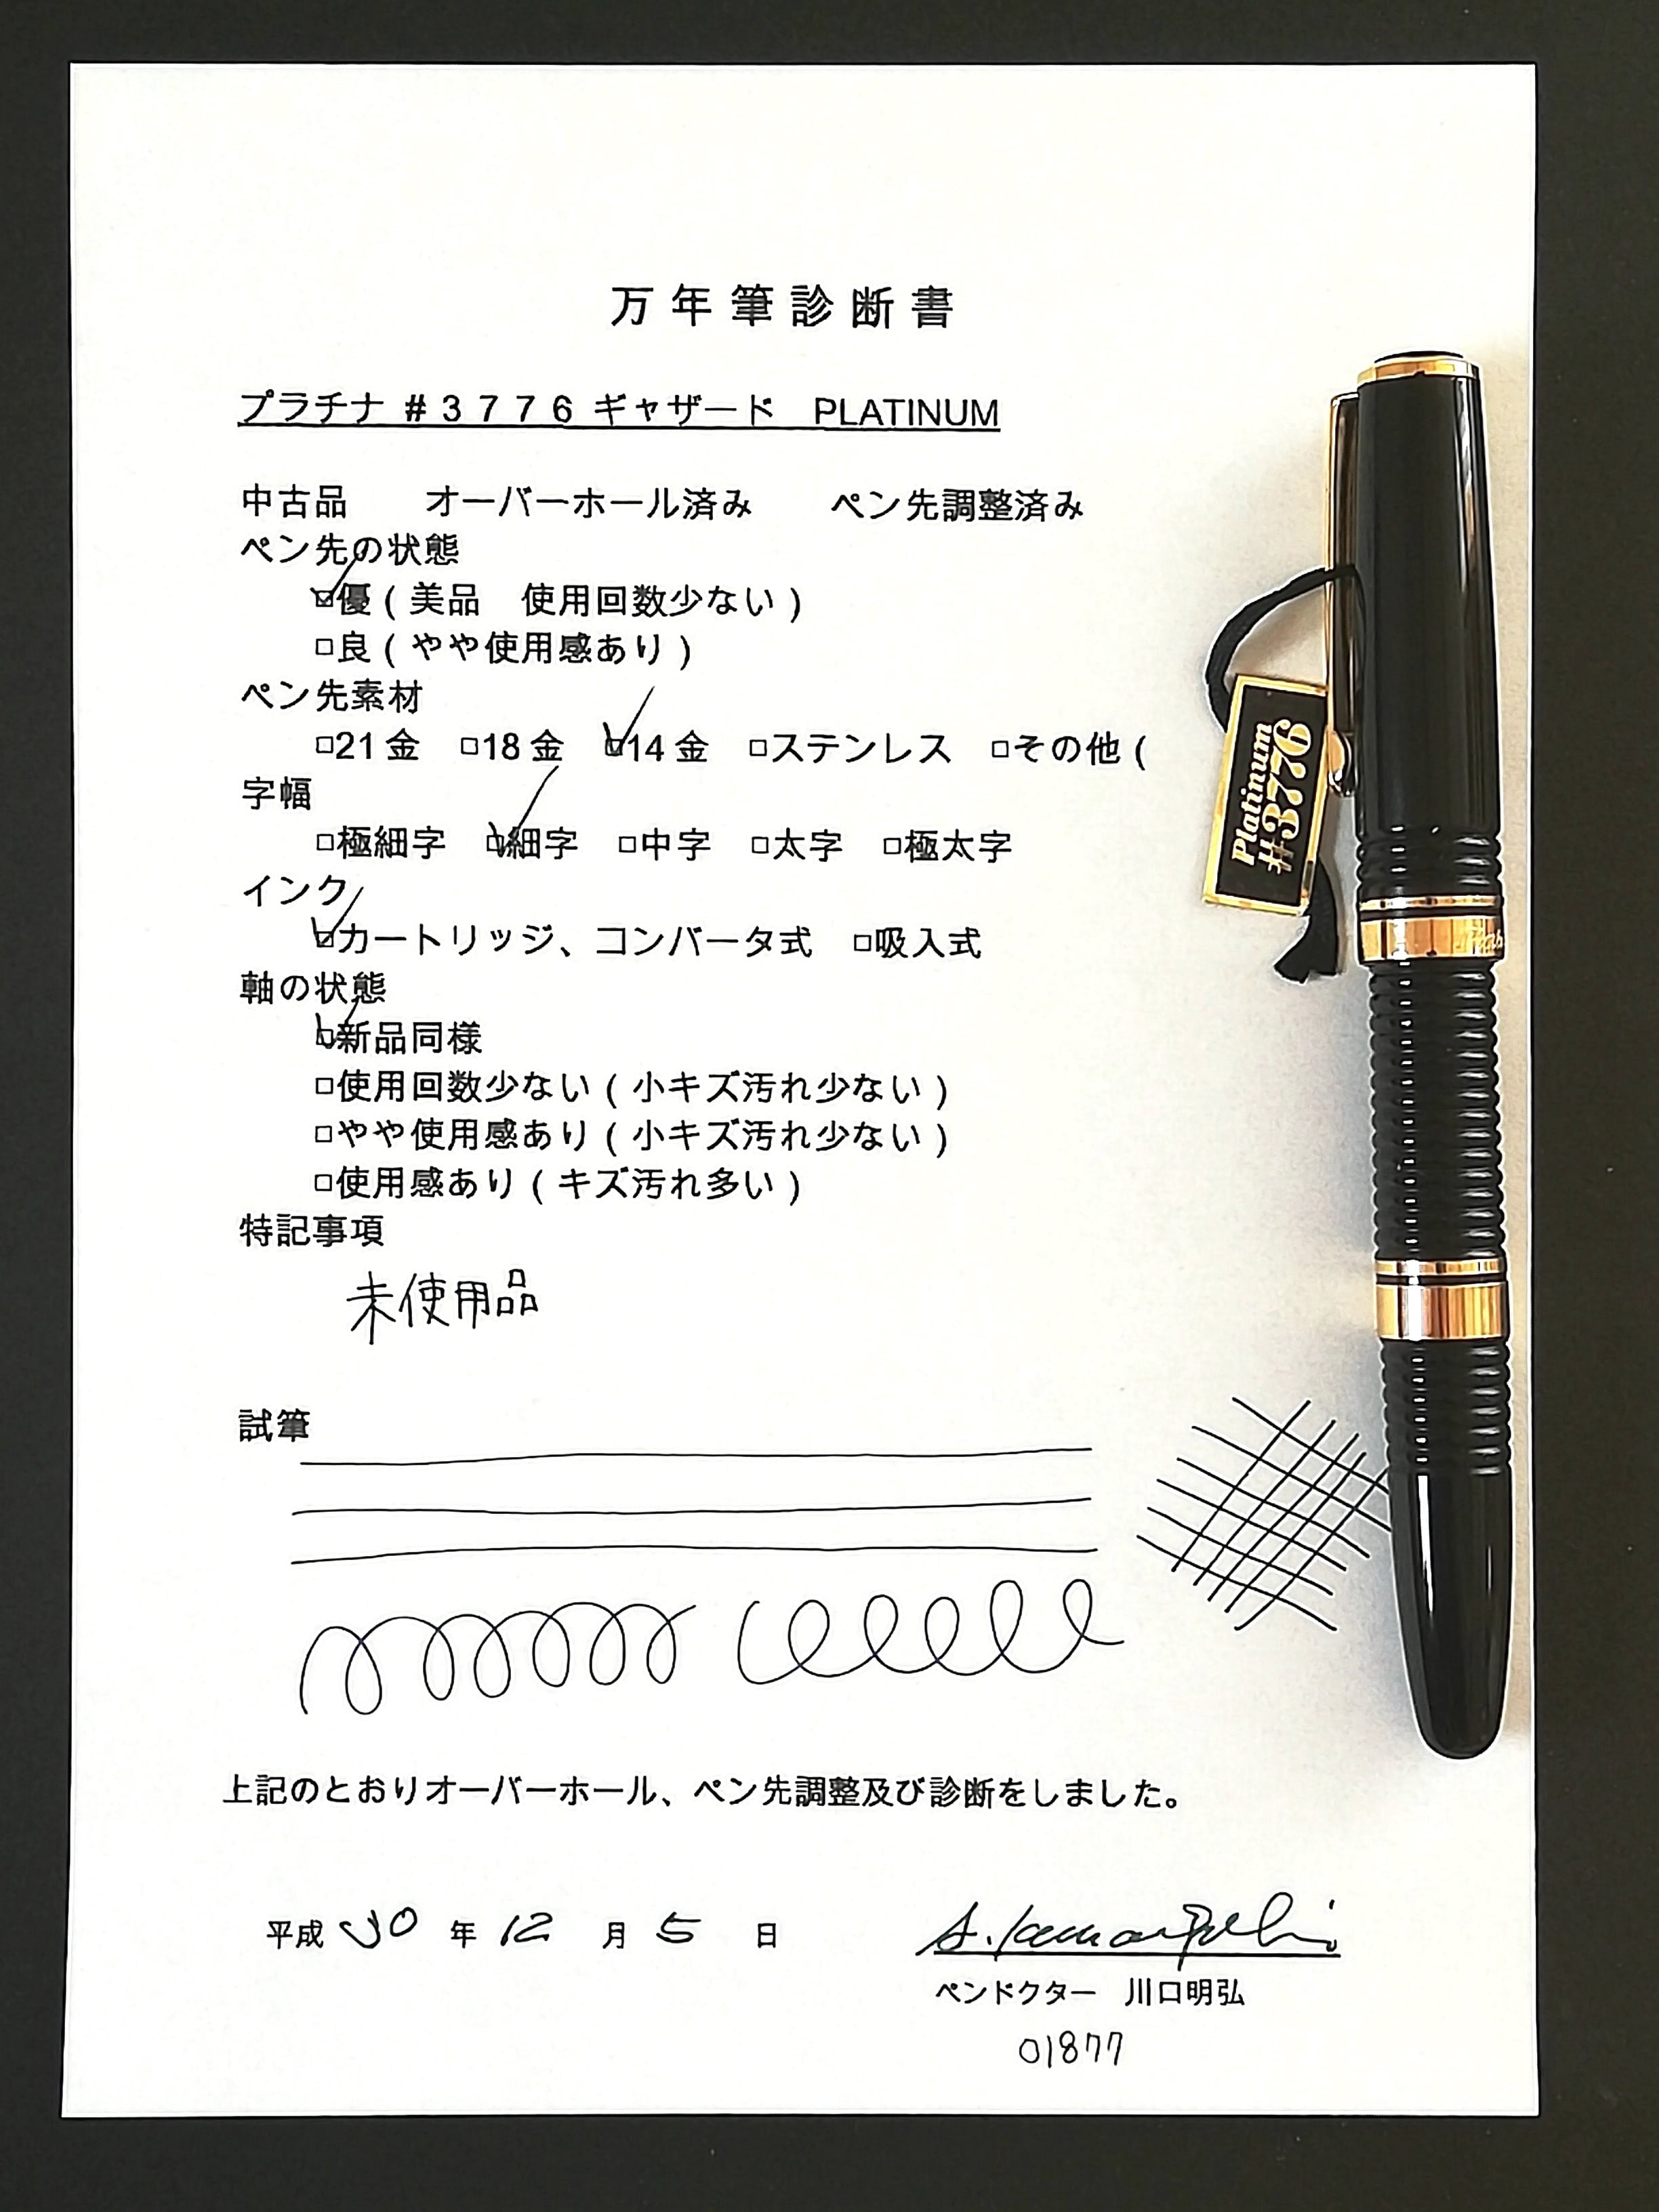 万年筆診断書
プラチナ #3776 ギャザード PLATINUM
中古品 オーバーホール済み ペン先調整済み
ペン先の状態
☑優(美品 使用回数少ない)
□良(やや使用感あり)
ペン先素材
□21金 □18金 ☑14金 □ステンレス □その他(
字幅
□極細字 ☑細字 □中字 □太字 □極太字
インク
☑カートリッジ、コンバータ式 □吸入式
軸の状態
☑新品同様
□使用回数少ない(小キズ汚れ少ない)
□やや使用感あり(小キズ汚れ少ない)
□使用感あり(キズ汚れ多い)
特記事項
未使用品
試筆
上記のとおりオーバーホール、ペン先調整及び診断をしました。
平成 30 年 12 月 5 日
ペンドクター 川口明弘
01877
Platinum
#3776